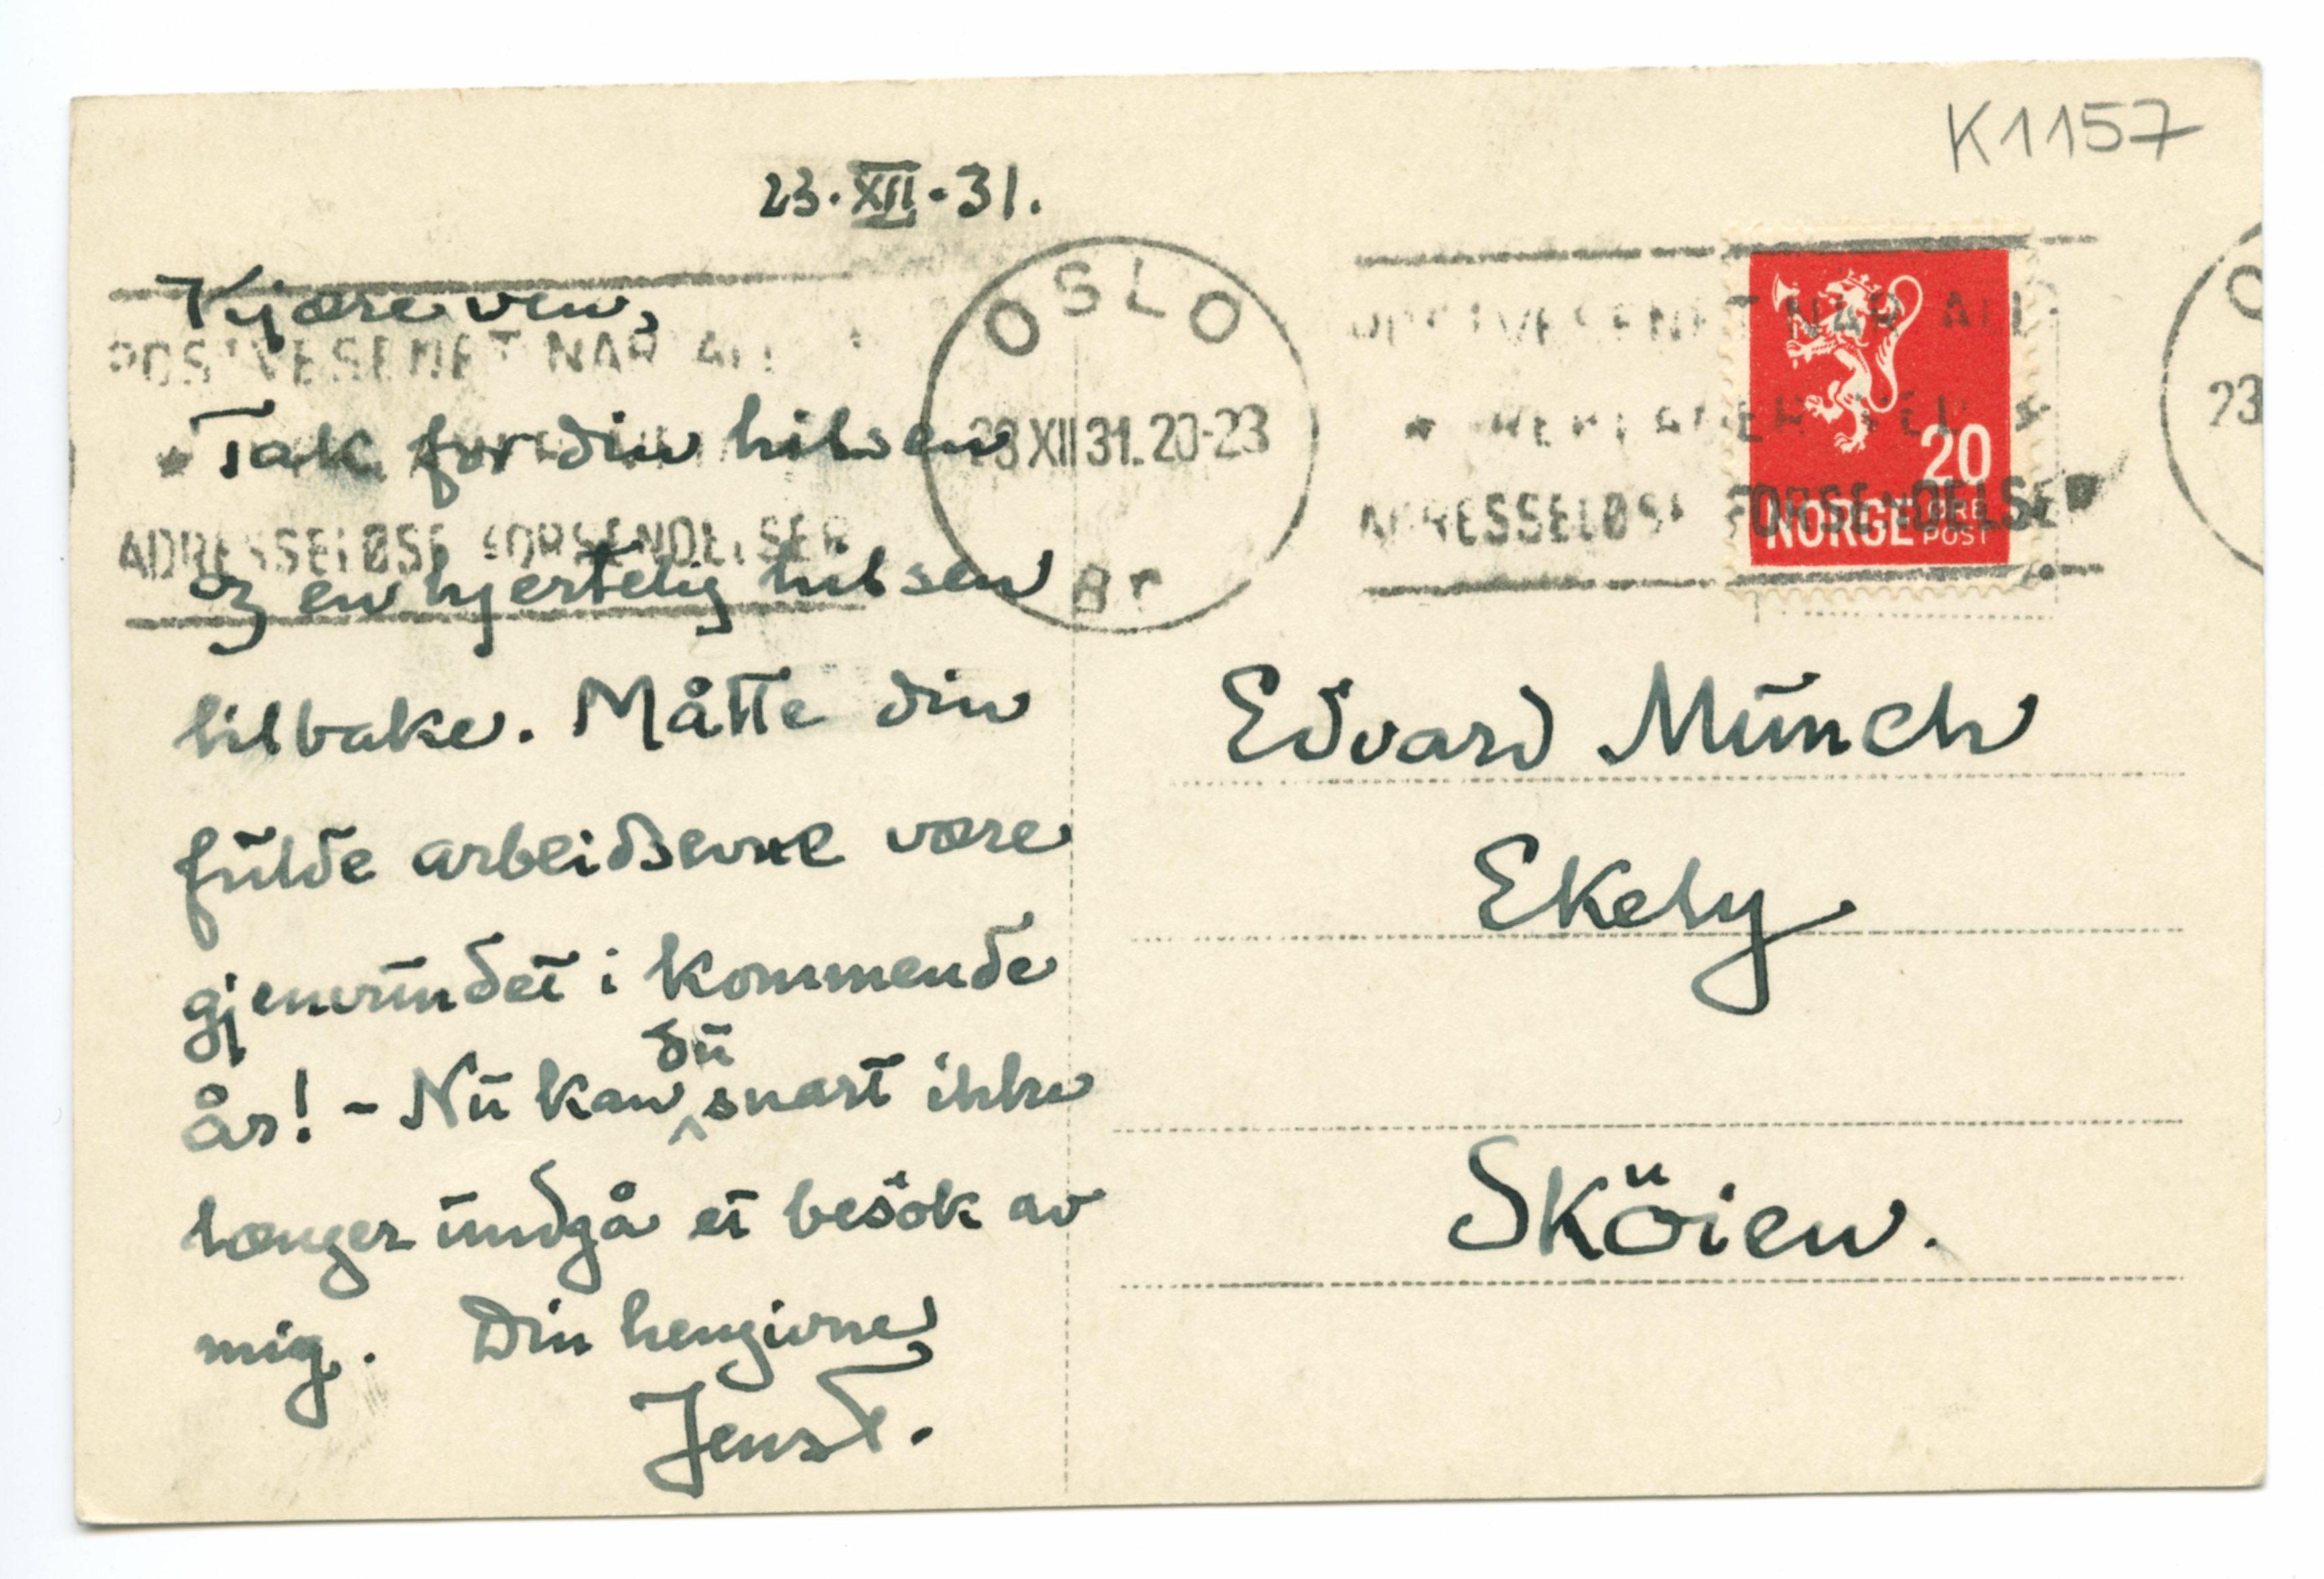 K1157
23·XII·31.
Kjære ven,
Tak for din hilsen
og en hjertelig hilsen
tilbake. Måtte din
fulde arbeidsevne være
gjenvundet i kommende
år! – Nu kan du snart ikke
længer undgå et besök av
mig. Din hengivne
Jens T.
OSLO
23 XII 31. 20-23
Br
POSTVESENET HAR ALT
ADRESSELØSE FORSENDELSER
POSTVESENET HAR ALT
ADRESSELØSE FORSENDELSER
20
NORGE
POST
O
23
Edvard Munch
Ekely
Sköien.